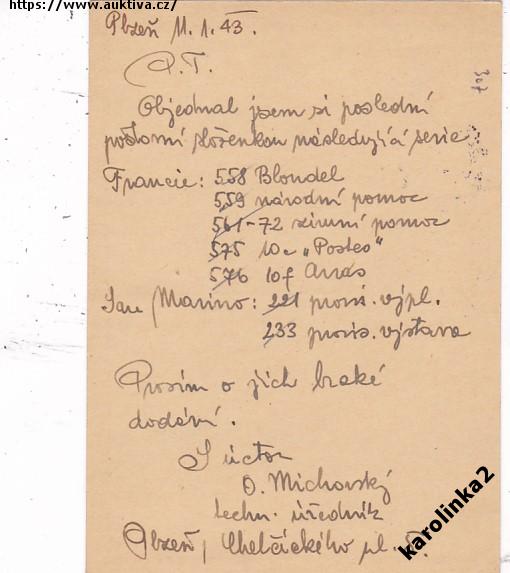 https://www.auktiva.cz/
Plzeň 11.1.43.
P.T.
307
Objednal jsem si poslední
poštovní složenkou následující serie
Francie: 558 Blondel
559 národní pomoc
561-72 zimní pomoc
575 10c „Postes"
576 10f Arras
San Marino: 221 provis. výpl.
233 provis. výstava
Prosím o jich brzké
dodání.
S úctou
O. Michovský
techn. úředník
Plzeň, Chelčického ul.
karolinka2